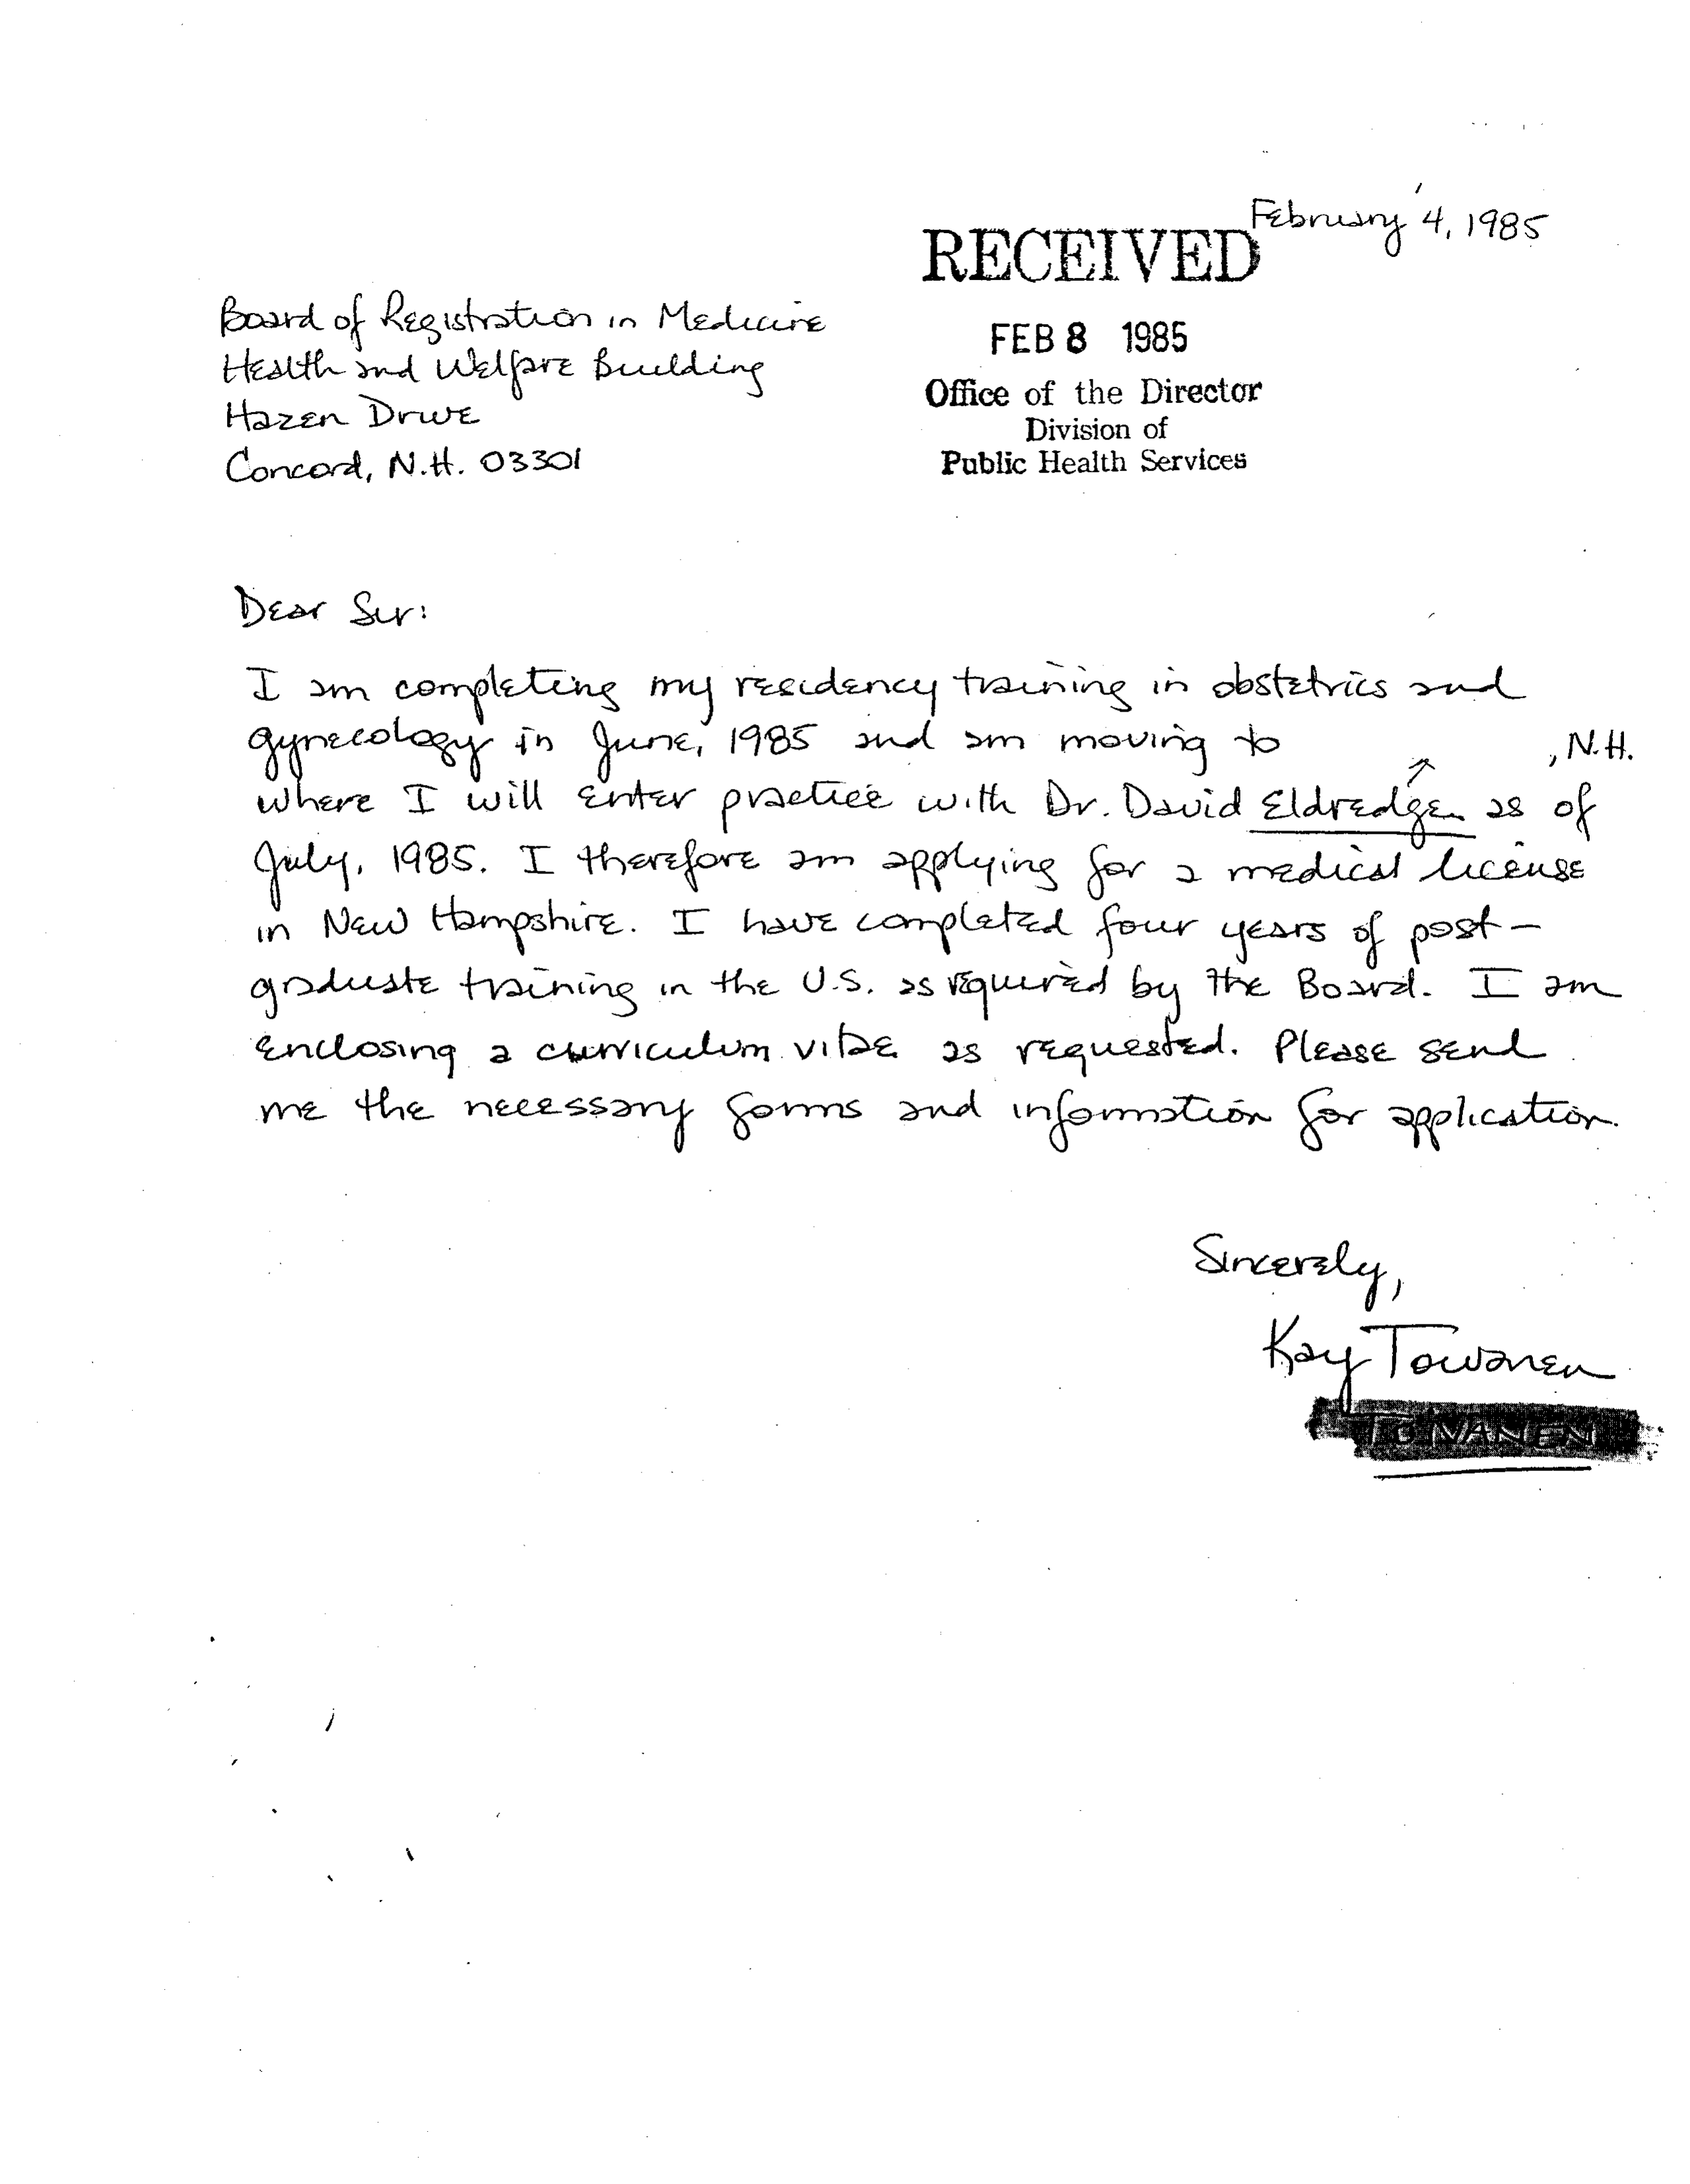 February 4, 1985
RECEIVED
FEB 8 1985
Office of the Director
Division of
Public Health Services
Board of Registration in Medicine
Health and Welfare Building
Hazen Drive
Concord, N.H. 03301
Dear Sir:
I am completing my residency training in obstetrics and
gynecology in June, 1985 and am moving to , N.H.
where I will enter practice with Dr. David Eldredge as of
July, 1985. I therefore am applying for a medical license
in New Hampshire. I have completed four years of post-
graduate training in the U.S. as required by the Board. I am
enclosing a curriculum vitae as requested. Please send
me the necessary forms and information for application.
Sincerely,
Kay Toivanen
TOIVANEN